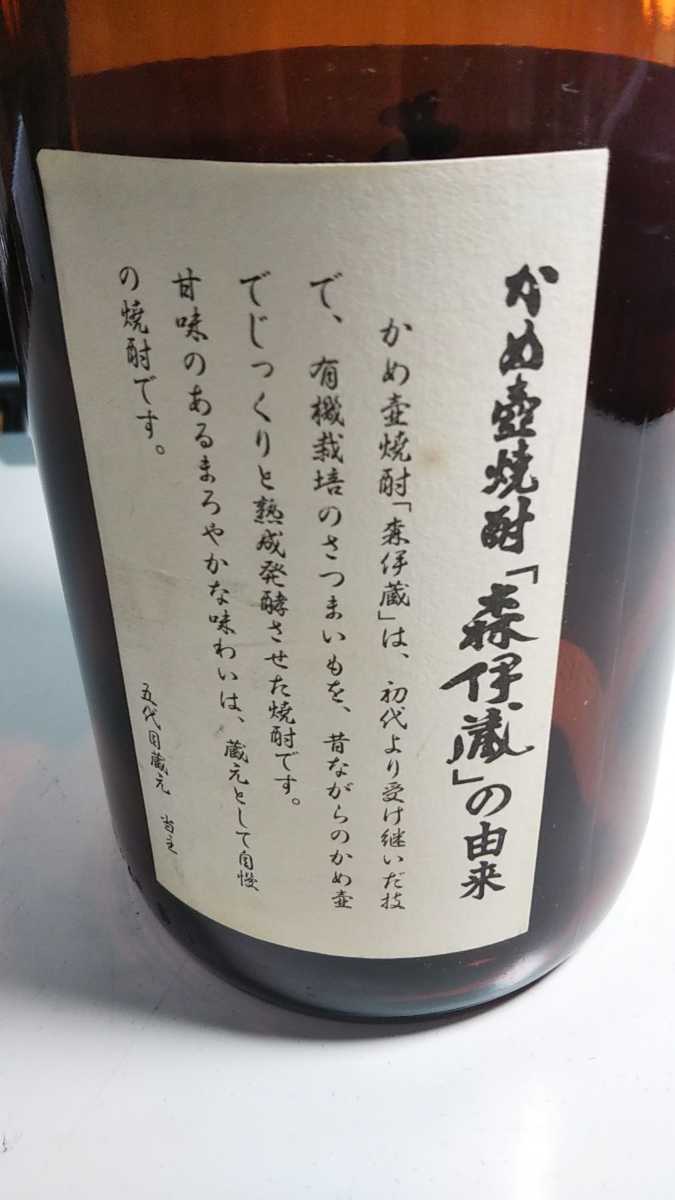 かめ壺焼酎「森伊蔵」の由来
かめ壺焼酎「森伊蔵」は、初代より受け継いだ技
で、有機栽培のさつまいもを、昔ながらのかめ壺
でじっくりと熟成発酵させた焼酎です。
甘味のあるまろやかな味わいは、蔵元として自慢
の焼酎です。
五代目蔵元 当主